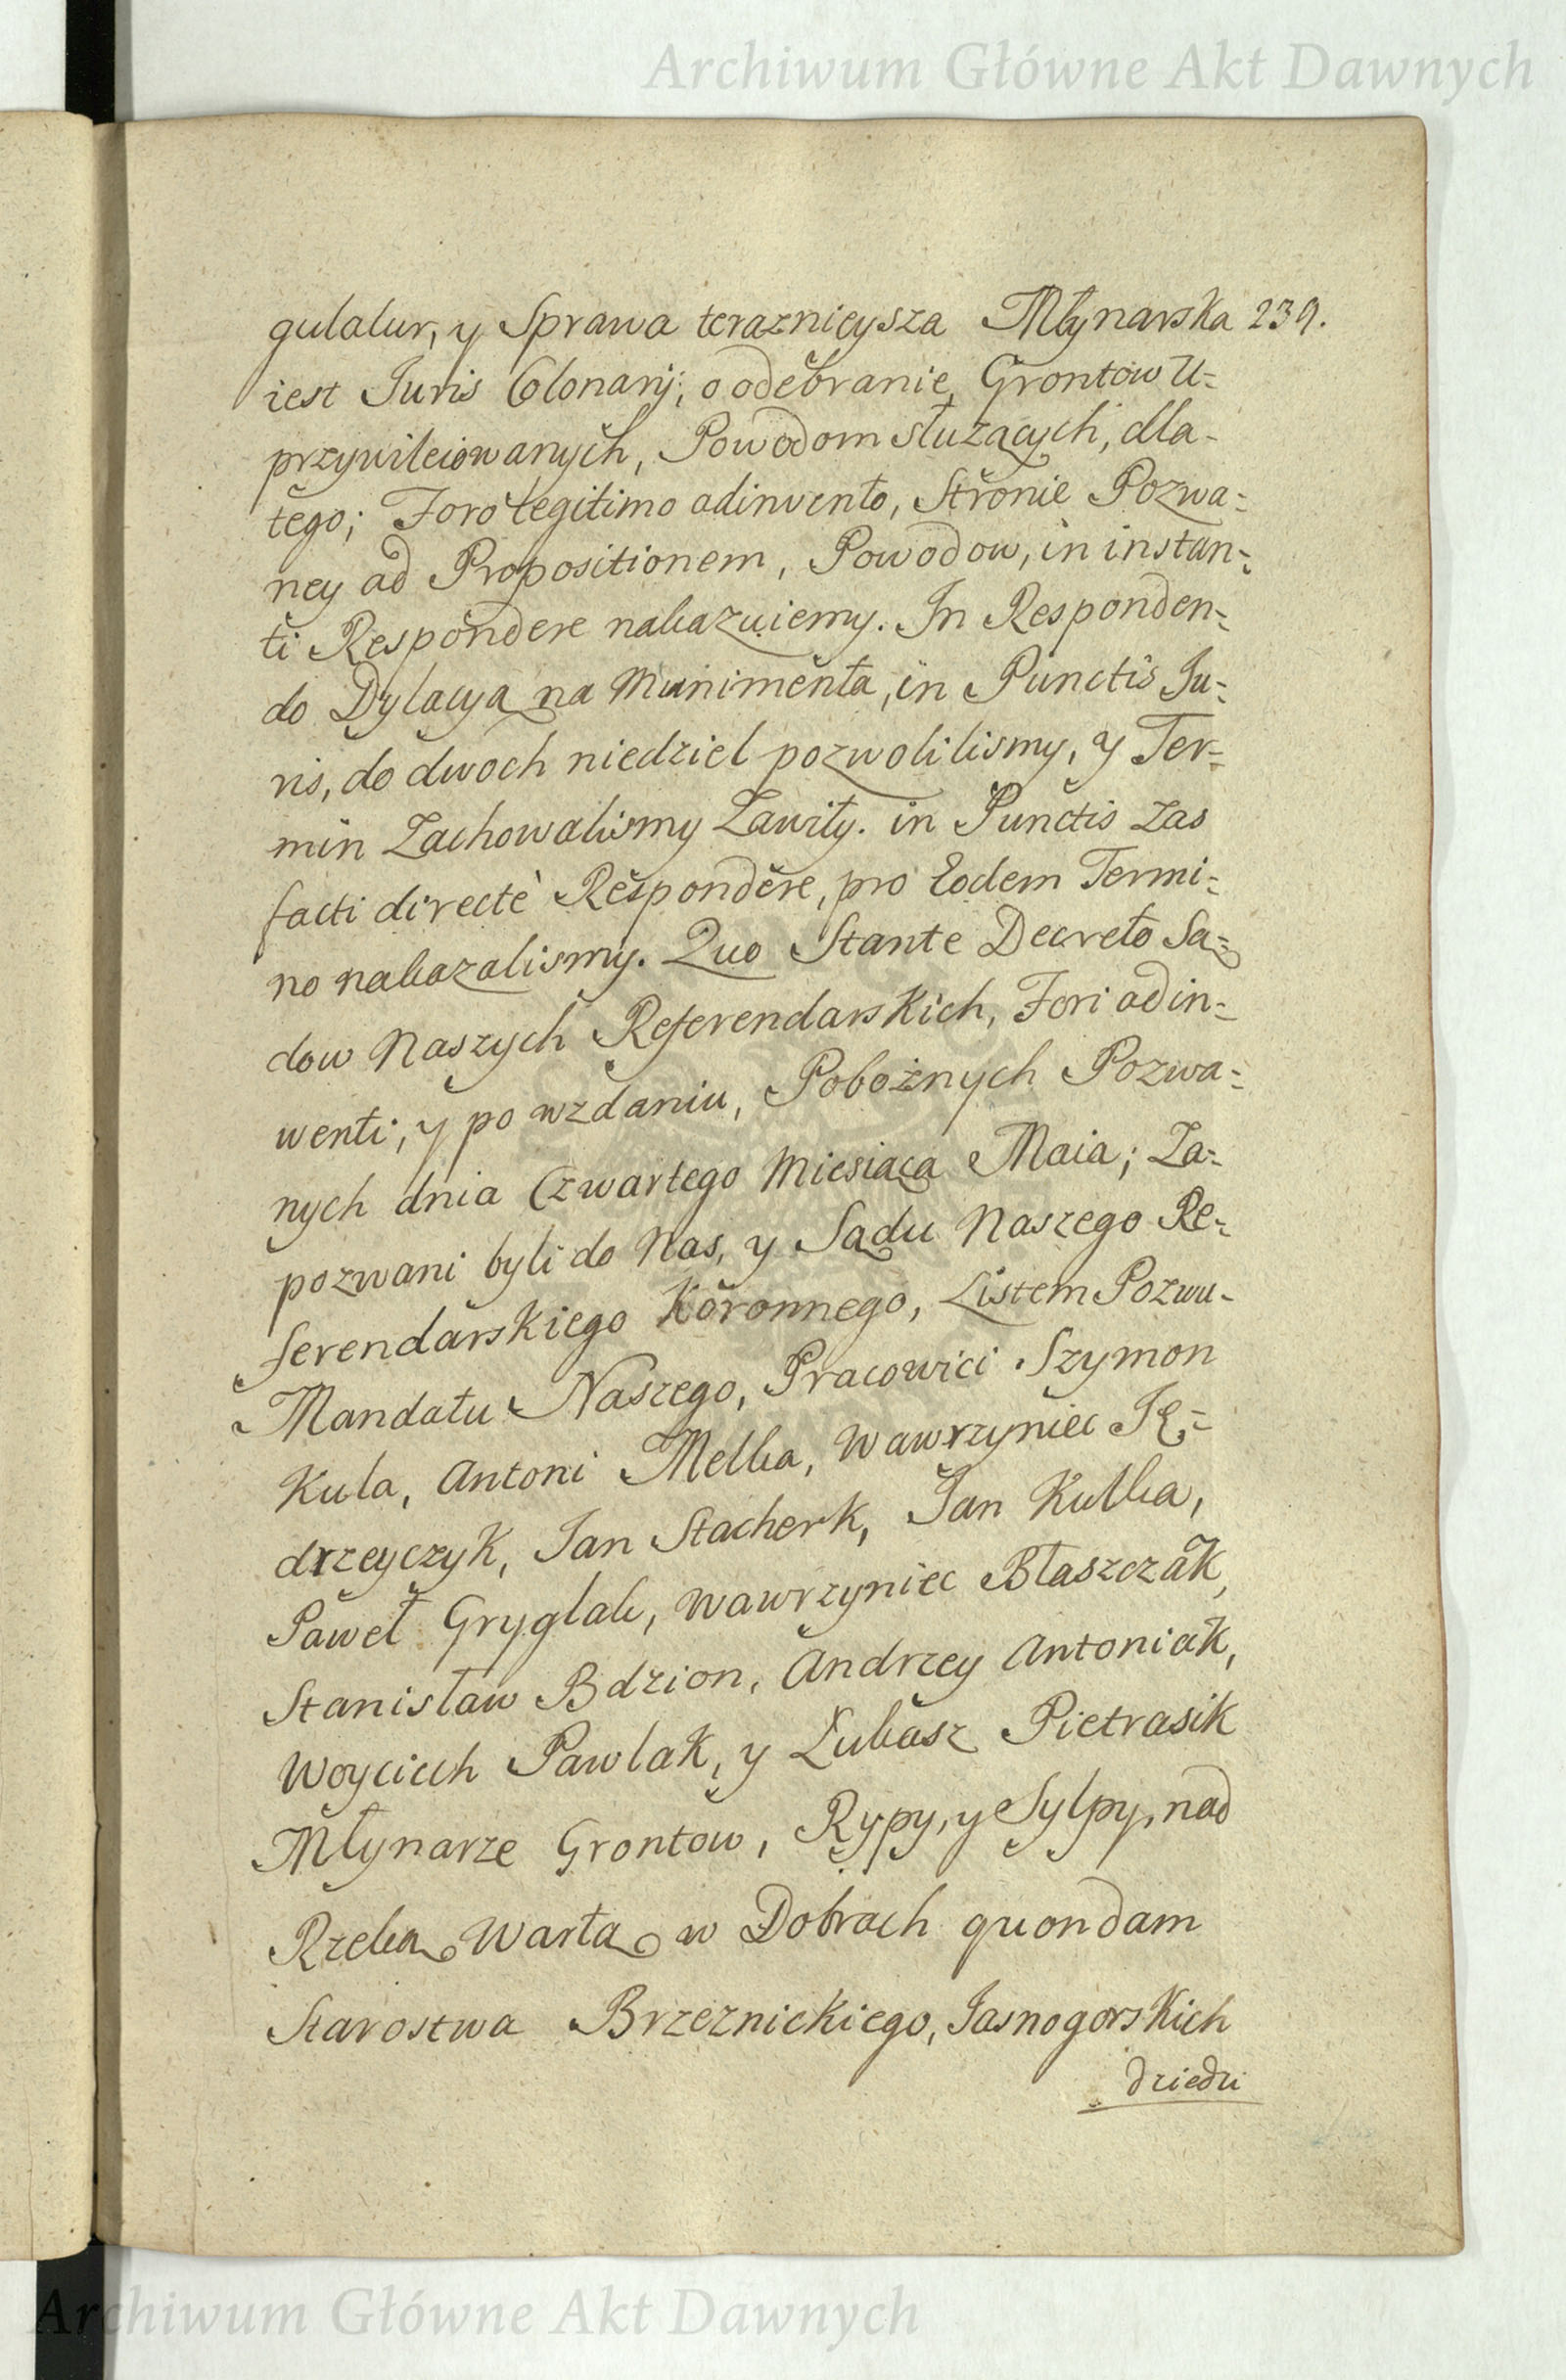 Archiwum Główne Akt Dawnych
gulatur, y Sprawa teraznieysza Młynarska 239.
iest Juris Colonarij; o odebranie Grontow U-
przywileiowanych, Powodom służących, dla-
tego; Foro legitimo adinvento, Stronie Pozwa-
ney ad Propositionem, Powodow, in instan-
ti Respondere nakazuiemy. In Responden-
do Dylacyą na Munimenta, in Punctis Ju-
ris, do dwoch niedziel pozwolilismy, y Ter-
min Zachowalismy Zawity. in Punctis Zas
facti directè Respondere, pro Eodem Termi-
no nakazalismy. Quo Stante Decreto Są-
dow Naszych Referendarskich, Fori adin-
wenti, y po wzdaniu, Pobożnych Pozwa-
nych dnia Czwartego Miesiąca Maia; Za-
pozwani byli do Nas, y Sądu Naszego Re-
ferendarskiego Koronnego, Listem Pozwu
Mandatu Naszego, Pracowici Szymon
Kula, Antoni Melka, Wawrzyniec Ję-
drzeyczyk, Jan Stacherk, Jan Kulka,
Paweł Gryglak, Wawrzyniec Błaszczak,
Stanisław Bdzion, Andrzey Antoniak,
Woyciech Pawlak, y Łukasz Pietrasik
Młynarze Grontow, Rypy, y Sylpy, nad
Rzeką Wartą w Dobrach quondam
Starostwa Brzeznickiego, Jasnogorskich
dziedzi
Archiwum Główne Akt Dawnych